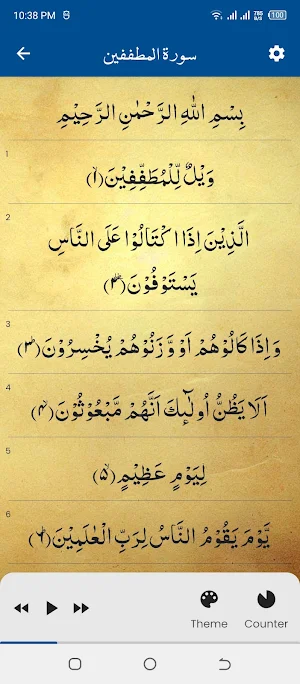 10:38 PM
785 B/s
100
سورة المطففين
بِسْمِ اللهِ الرَّحْمٰنِ الرَّحِيْمِ
1
وَيْلٌ لِّلْمُطَفِّفِيْنَ (۱)
2
الَّذِيْنَ اِذَا اكْتَالُوْا عَلَى النَّاسِ
يَسْتَوْفُوْنَ (۲)
3
وَ اِذَا كَالُوْهُمْ اَوْ وَّ زَنُوْهُمْ يُخْسِرُوْنَ (۳)
4
اَلَا يَظُنُّ اُولٰٓىٕكَ اَنَّهُمْ مَّبْعُوْثُوْنَ (۴)
5
لِيَوْمٍ عَظِيْمٍ (۵)
6
یَّوْمَ يَقُوْمُ النَّاسُ لِرَبِّ الْعٰلَمِيْنَ (۶)
Theme
Counter